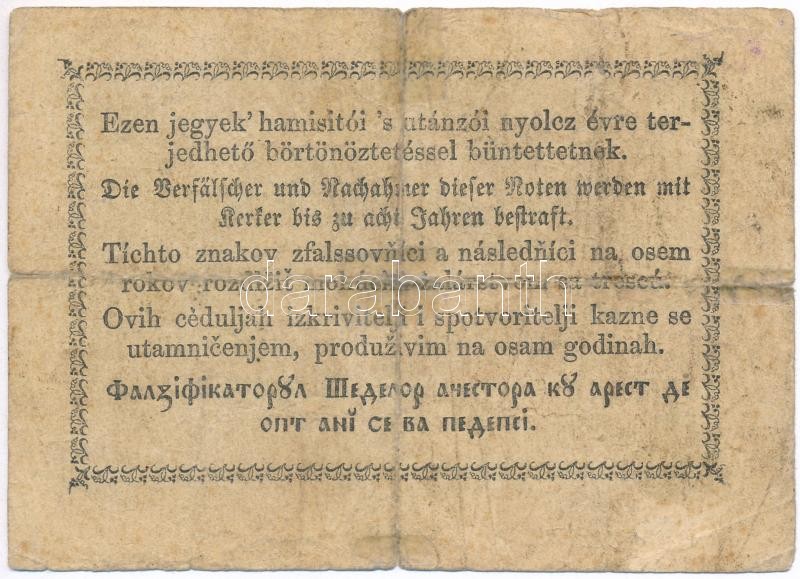 Ezen jegyek' hamisitói 's utánzói nyolcz évre ter-
jedhető börtönöztetéssel büntettetnek.
Die Verfälscher und Nachahmer dieser Noten werden mit
Kerker bis zu acht Jahren bestraft.
Tíchto znakov zfalssovňíci a následňíci na osem
rokov
darabanth
Ovih cèduljah izkrivitelji i spotvoritelji kazne se
utamničenjem, produživim na osam godinah.
Фалȣіфікаторȣл Шеделор ачестора кȣ арест де
опт anĭ се ва педепсі.